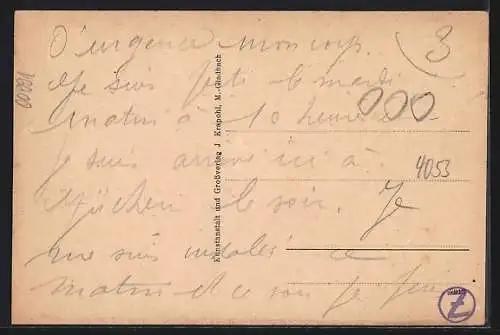 D'urgence mon corp.
Je suis parti le mardi
matin à 10 heures
je suis arrivé ici à
München le soir. Je
me suis installé ce
matin et ce soir je
3
000
4053
Kunstanstalt und Großverlag J. Krapohl, M.-Gladbach
Z